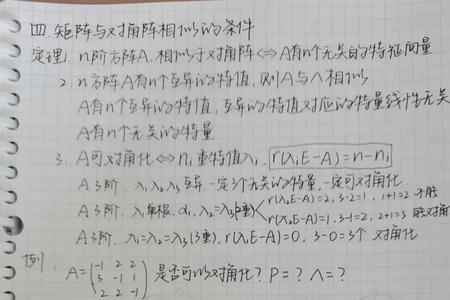 四.矩阵与对角阵相似的条件
定理1. n阶方阵A,相似于对角阵⇔A有n个无关的特征向量
2. n方阵A有n个互异的特值,则A与Λ相似.
A有n个互异的特值,互异的特值对应的特量线性无关
A有n个无关的特量.
3. A可对角化⇔ nᵢ重特值λᵢ, r(λᵢE-A)=n-nᵢ
A 3阶. λ₁λ₂λ₃互异.一定3个无关的特量,一定可对角化.
A 3阶. λ₁单根. α₁, λ₂=λ₃(2重) r(λ₂E-A)=2, 3-2=1, 1+1=2 不能
r(λ₂E-A)=1, 3-1=2, 2+1=3 能对角
A 3阶, λ₁=λ₂=λ₃(3重), r(λ₁E-A)=0, 3-0=3个 对角化
例1
A= (-1 2 2 是否可以对角化? P=? Λ=?
3 -1 1
2 2 -1)